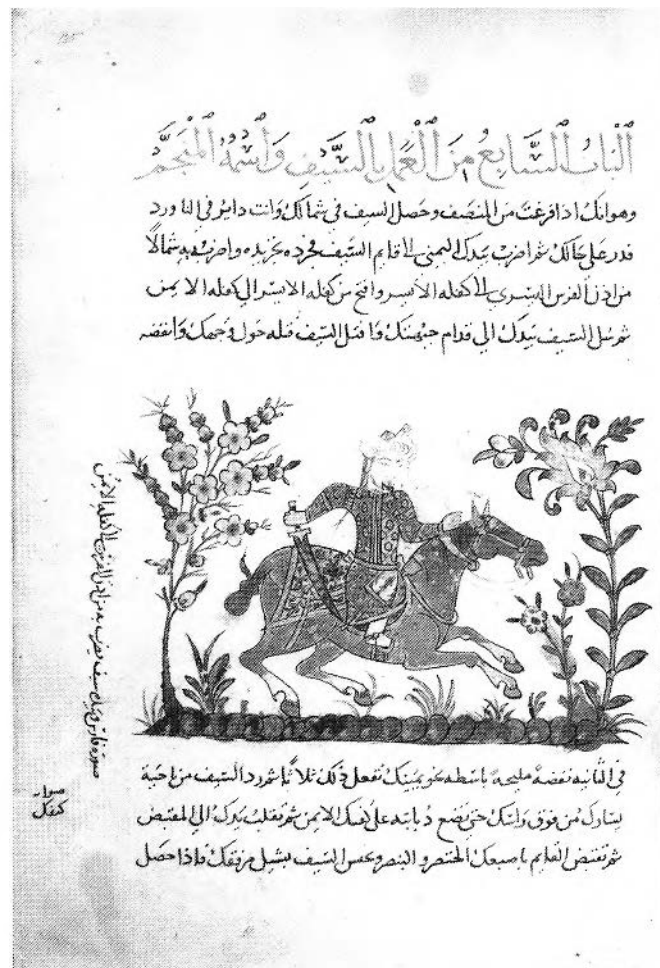 الباب السابع من العمل بالسيف واسمه المنجم
وهو انك اذا فرغت من المنصف وحصل السيف في شمالك وانت داير في الناورد
فدر على حالك ثم اضرب بيدك اليمنى الى قايم السيف فجرده تجريده واضرب به شمالا
من اذن الفرس اليسرى الى كفله الايسر وافتح من كفله الايسر الي كفله الايمن
ثم شل السيف بيدك الي قدام جبهتك وافتل السيف فتله حول وجهك وانفضه
صورة فارس وبيده سيف يضرب به من اذن الفرس الي كفله الايمن
في الثانيه نفضة مليحة باسطه نحو يمينك تفعل ذلك ثلاثا ثم رد السيف من ناحية
يسارك من فوق راسك حتى يضع ذبابته على كفك الايمن ثم تقلب يدك الي المقبض
صوابه
كفل
ثم تقبض القايم باصبعك الخنصر والبنصر وعس السيف بشيل مرفقك فاذا حصل